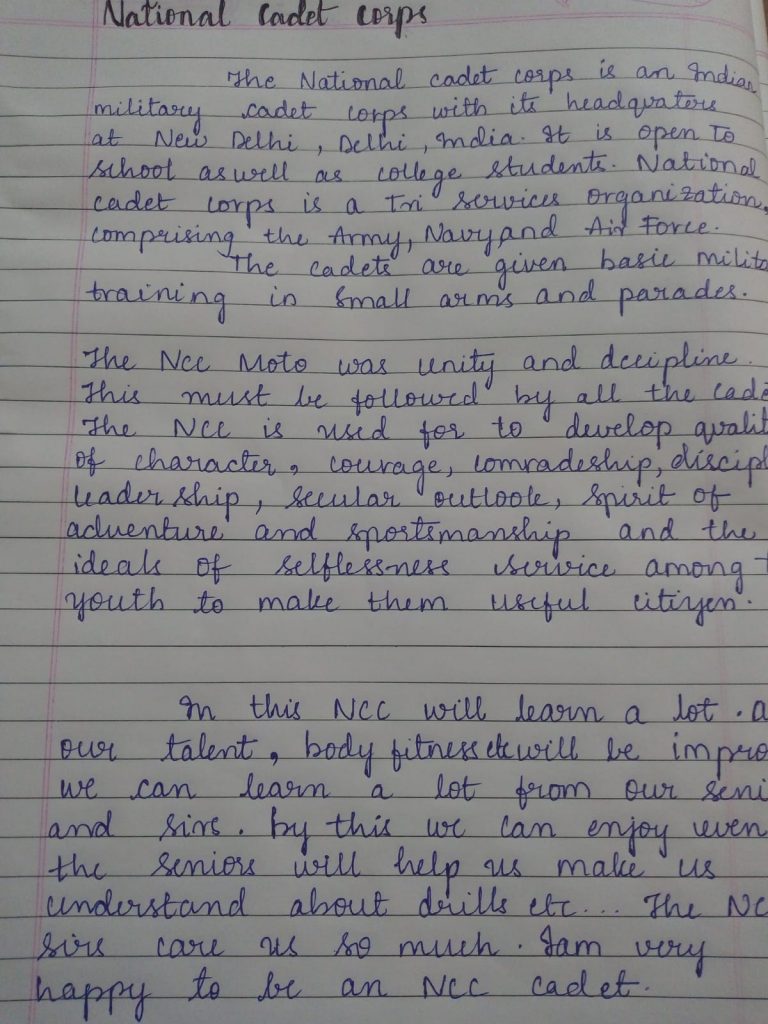 National cadet corps
The National cadet corps is an Indian
military cadet corps with its headquaters
at New Delhi, Delhi, India. It is open To
school aswell as college students. National
cadet corps is a Tri services organization,
comprising the Army, Navy and Air Force.
The cadets are given basic milita
training in small arms and parades.
The Ncc Moto was unity and dccipline.
This must be followed by all the cade
The NCC is used for to develop qualit
of character, courage, comradeship, discipl
leader ship, secular outlook, spirit of
adventure and sportsmanship and the
ideals of selflessness service among t
youth to make them useful citizen.
In this NCC will learn a lot. a
our talent, body fitness etc will be impro
we can learn a lot from our seni
and sirs. by this we can enjoy even
the seniors will help us make us
understand about drills etc... The NC
sirs care us so much. Iam very
happy to be an NCC cadet.